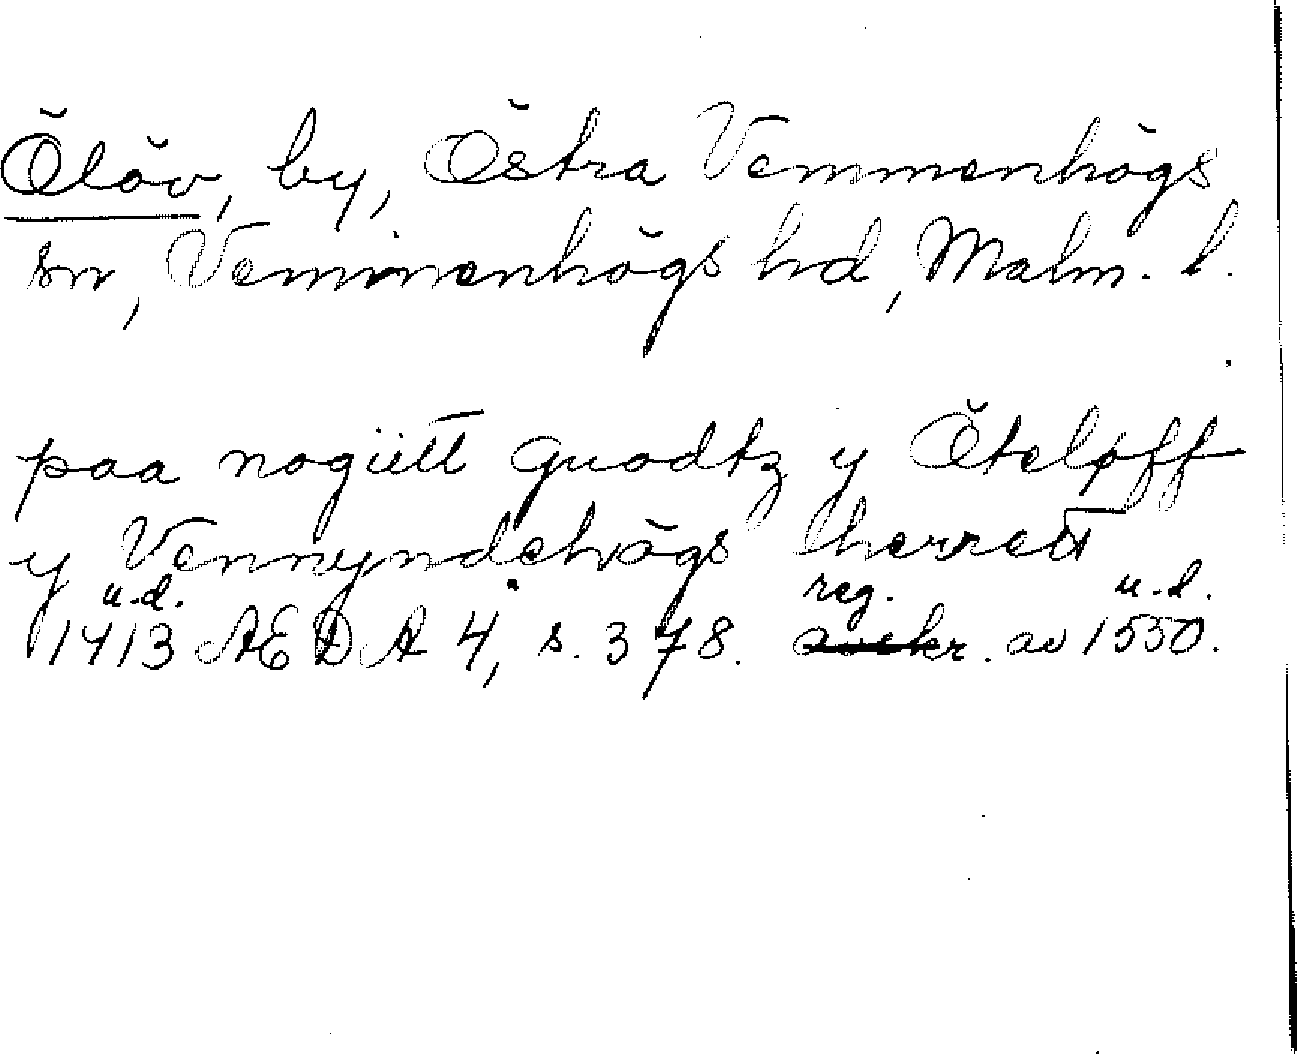 Ölöv, by, Östra Vemmenhögs
sn, Vemmenhögs hd, Malm. l.
paa nogütt guodtz y Öteløff
y Vennyndehögs herrett
u.d. reg. u.d.
1413 AEDA 4, s. 378. avskr. av 1550.